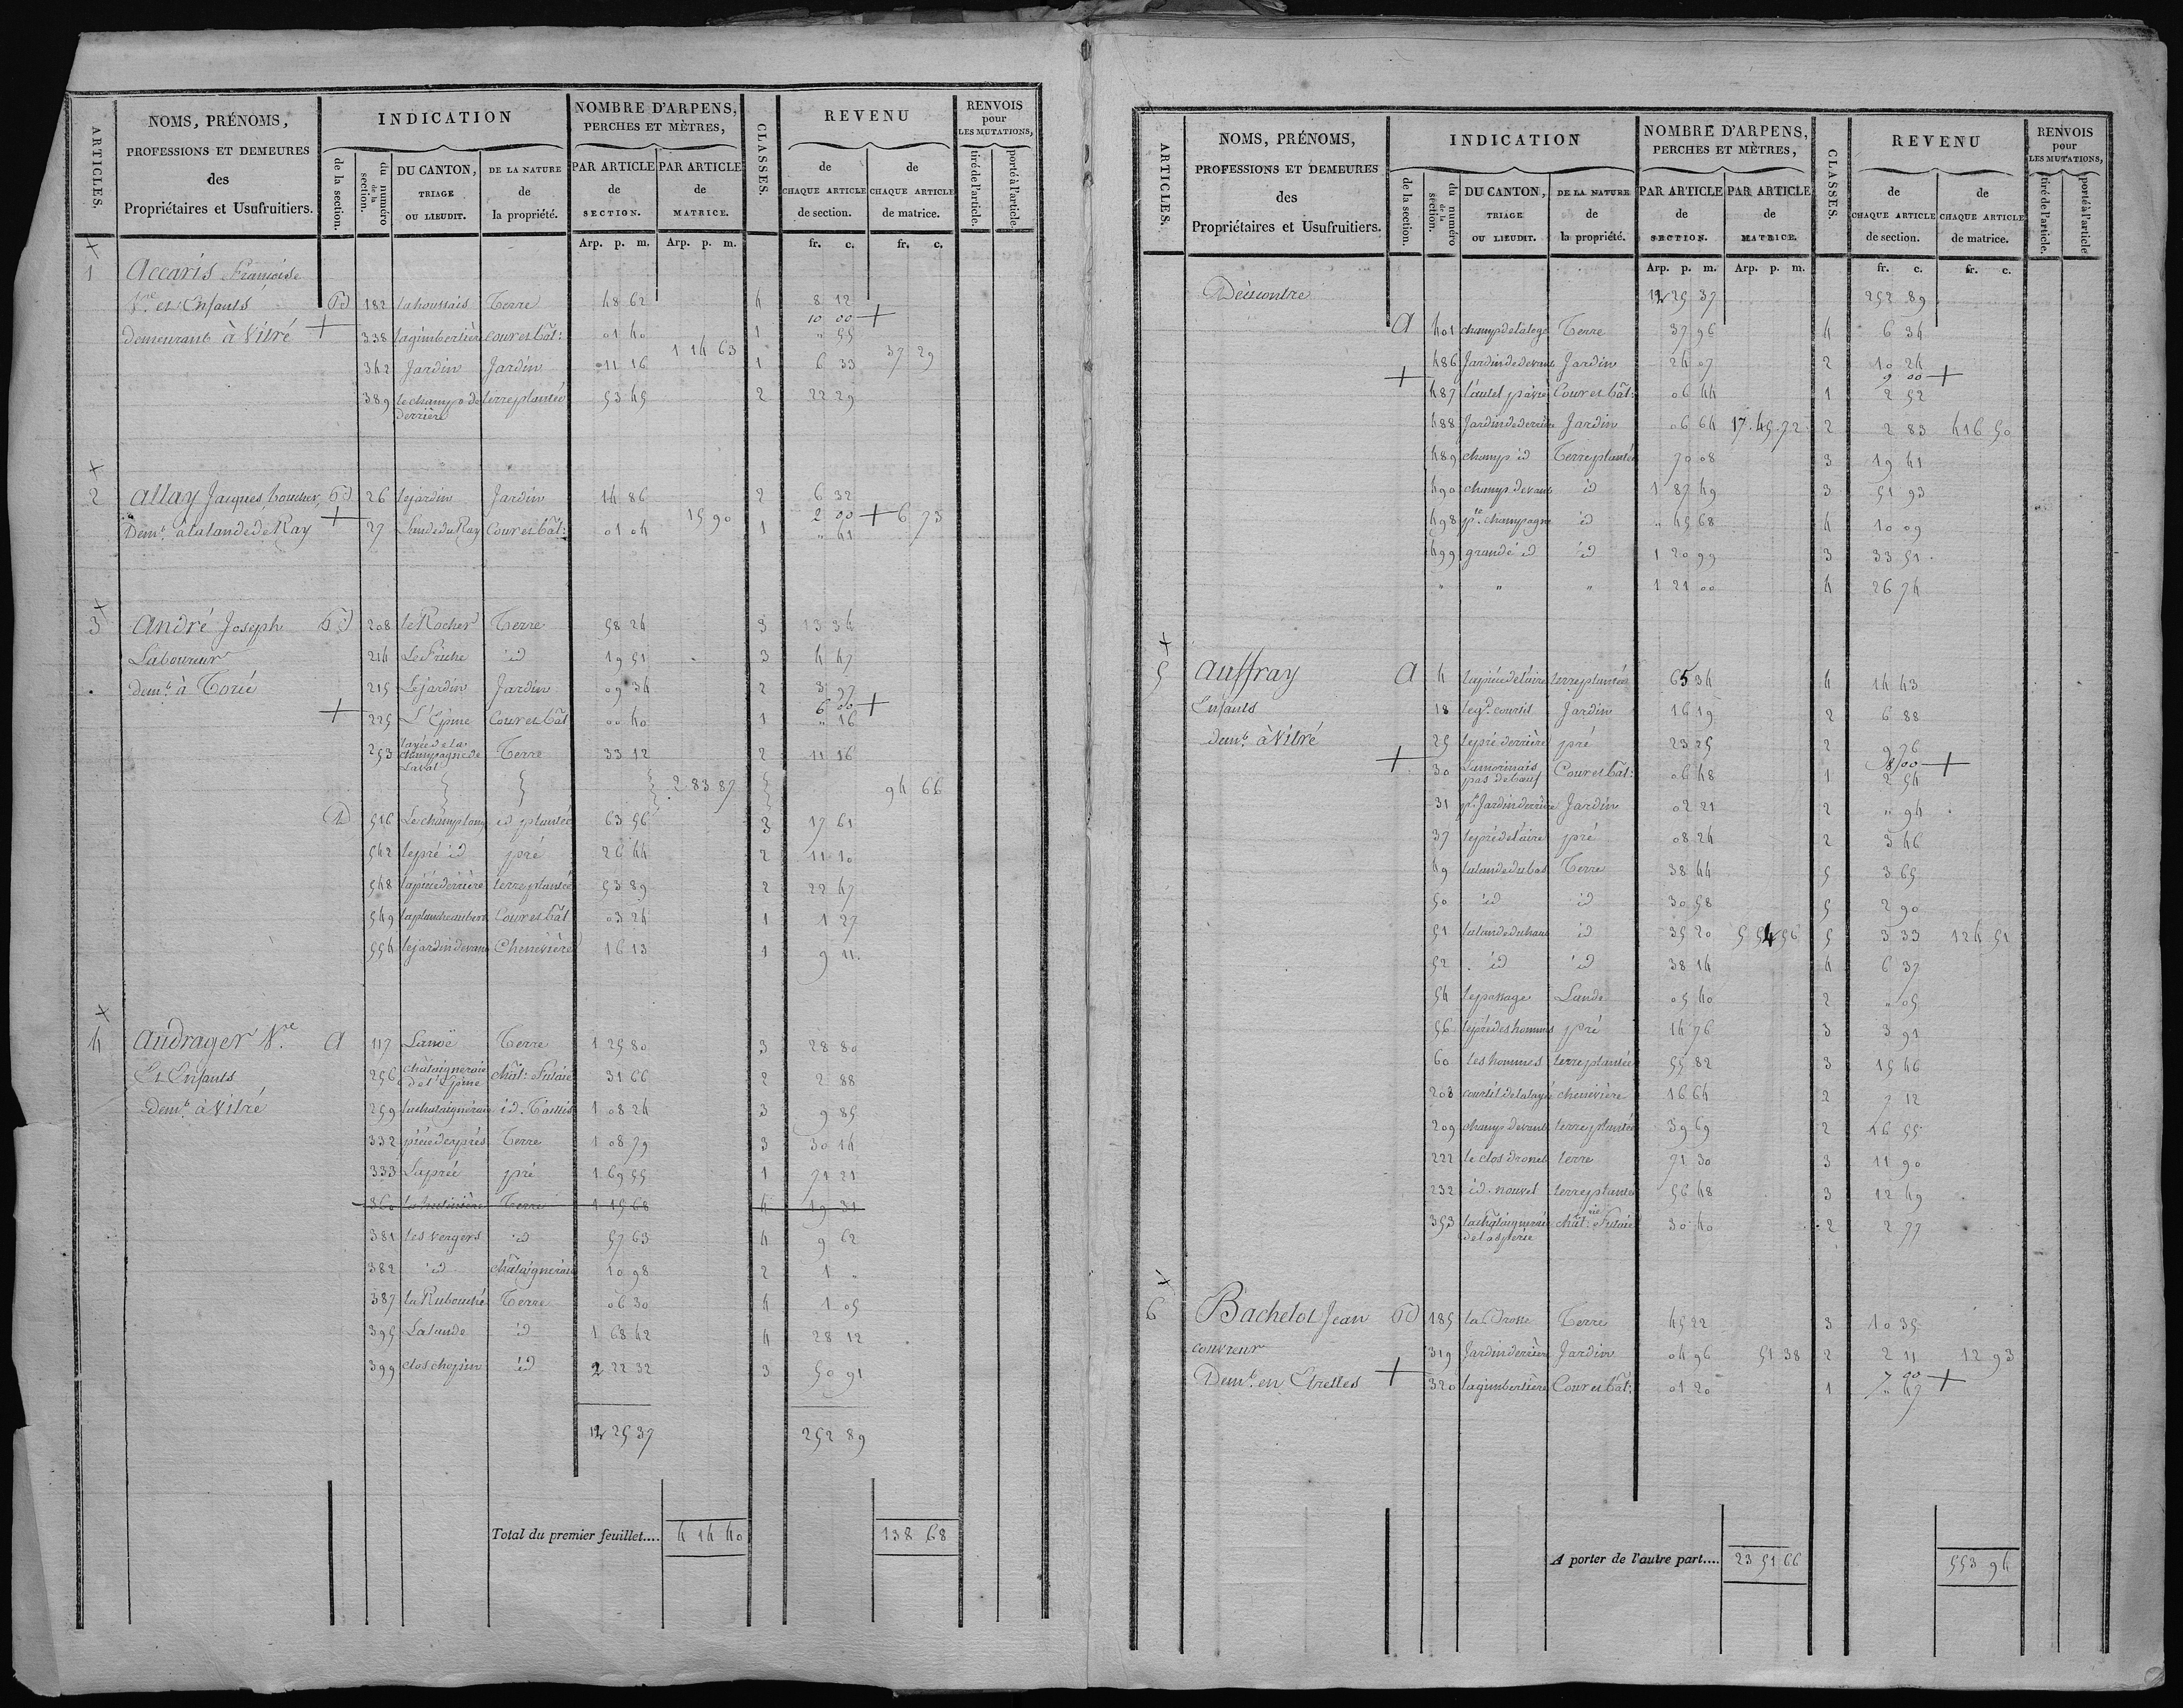 ARTICLES.
NOMS, PRÉNOMS,
PROFESSIONS ET DEMEURES
des
Propriétaires et Usufruitiers.
INDICATION
de la section.
du numéro de la section.
DU CANTON, TRIAGE OU LIEUDIT.
DE LA NATURE de la propriété.
NOMBRE D'ARPENS,
PERCHES ET MÈTRES,
PAR ARTICLE de SECTION.
PAR ARTICLE de MATRICE.
CLASSES.
REVENU
de CHAQUE ARTICLE de section.
de CHAQUE ARTICLE de matrice.
RENVOIS pour LES MUTATIONS,
tiré de l'article.
porté à l'article.
Arp. p. m. Arp. p. m. fr. c. fr. c.
1 Accaris Françoise
Ve et Enfants 182 la houssais Terre 48 62 4 8 12
10 00 +
demeurant à Vitré + 338 la gimbertière Cour et bât: 01 40 1 " 55
1 14 63 37 29
342 Jardin Jardin 11 16 1 6 33
389 le champ de derrière terre plantée 53 45 2 22 29
2 Allay Jacques, 26 le jardin Jardin 14 86 2 6 32
15 90 2 00 + 6 73
Demt. à la lande de Ray + 27 Lande du Ray Cour et bât: 01 04 1 " 41
3 André Joseph 208 le Rocher Terre 58 24 3 13 34
Laboureur 214 Le Friche id 19 51 3 4 47
demt. à Torcé 215 Le jardin Jardin 09 34 2 3 97
6 00 +
+ 225 L'Epine Cour et bât 00 40 1 " 16
253 champagne de Laval Terre 33 12 2 11 16
2 83 87 94 66
516 Le champ long id plantée 63 56 3 17 61
542 le pré id pré 26 44 2 11 10
548 la pièce derrière terre plantée 53 89 2 22 47
549 Cour et bât 03 24 1 1 27
554 le jardin devant Chenevière 16 13 1 9 11
4 Audrager Ve. A 117 Lanoë Terre 1 25 80 3 28 80
Et Enfants 256 châtaigneraie de l'Epine chât: Futaie 31 66 2 2 88
demt. à Vitré 259 la chataigneraie id. Taillis 1 08 24 3 9 85
332 pièce des prés Terre 1 08 79 3 30 14
333 La prée pré 1 69 55 1 71 21
360 Terre 1 15 68 4 19 31
381 les vergers id 57 63 4 9 62
382 id châtaigneraie 10 98 2 1 "
387 la Rubouché Terre 06 30 4 1 05
395 La lande id 1 68 42 4 28 12
399 clos chopin id 2 22 32 3 50 91
12 25 37 252 89
Total du premier feuillet.... 4 14 40 138 68
ARTICLES.
NOMS, PRÉNOMS,
PROFESSIONS ET DEMEURES
des
Propriétaires et Usufruitiers.
INDICATION
de la section.
du numéro de la section.
DU CANTON, TRIAGE OU LIEUDIT.
DE LA NATURE de la propriété.
NOMBRE D'ARPENS,
PERCHES ET MÈTRES,
PAR ARTICLE de SECTION.
PAR ARTICLE de MATRICE.
CLASSES.
REVENU
de CHAQUE ARTICLE de section.
de CHAQUE ARTICLE de matrice.
RENVOIS pour LES MUTATIONS,
tiré de l'article.
porté à l'article
Arp. p. m. Arp. p. m. fr. c. fr. c.
Décicontre 12 25 37 252 89
A 401 champ de la loge Terre 37 96 4 6 34
486 Jardin de devant Jardin 24 07 2 10 24
9 00 +
+ 487 Cour et bât: 06 44 1 2 52
488 Jardin de derrière Jardin 06 64 17 45 72 2 2 83 416 50
489 champ id Terre plantée 70 08 3 19 41
490 champ devant id 1 87 49 3 51 93
498 pte. champagne id " 45 68 4 10 09
499 grande id id 1 20 99 3 33 51
" " " 1 21 00 4 26 74
5 Auffray A 4 la pièce de l'aire terre plantée 65 34 4 14 43
Enfants 18 le gd. courtil Jardin 16 19 2 6 88
demt. à Vitré 25 le pré derrière pré 23 25 2 9 76
18 00 +
+ 30 La morinais pas de boeuf Cour et bât: 06 48 1 2 54
31 pt. Jardin derrière Jardin 02 21 2 " 94
37 le pré de l'aire pré 08 24 2 3 46
49 la lande du bas Terre 38 44 5 3 65
50 id id 30 58 5 2 90
51 la lande du haut id 35 20 5 54 56 5 3 33 124 51
52 id id 38 14 4 6 37
54 le passage Lande 05 40 2 " 05
56 le pré des hommes pré 14 76 3 3 91
60 les hommes terre plantée 55 82 3 15 46
208 chenevière 16 64 2 7 12
209 champ devant terre plantée 39 69 2 16 55
222 le clos dronet terre 71 30 3 11 90
232 id. nouvel terre plantée 56 48 3 12 49
353 la châtaigneraie chât: Futaie 30 40 2 2 77
6 Bachelot Jean 185 la Brosse Terre 45 22 3 10 35
couvreur 319 Jardin derrière Jardin 04 96 51 38 2 2 11 12 93
7 00 +
Demt. en Etrelles + 320 la gimbertière Cour et bât: 01 20 1 " 47
A porter de l'autre part.... 23 51 66 553 94